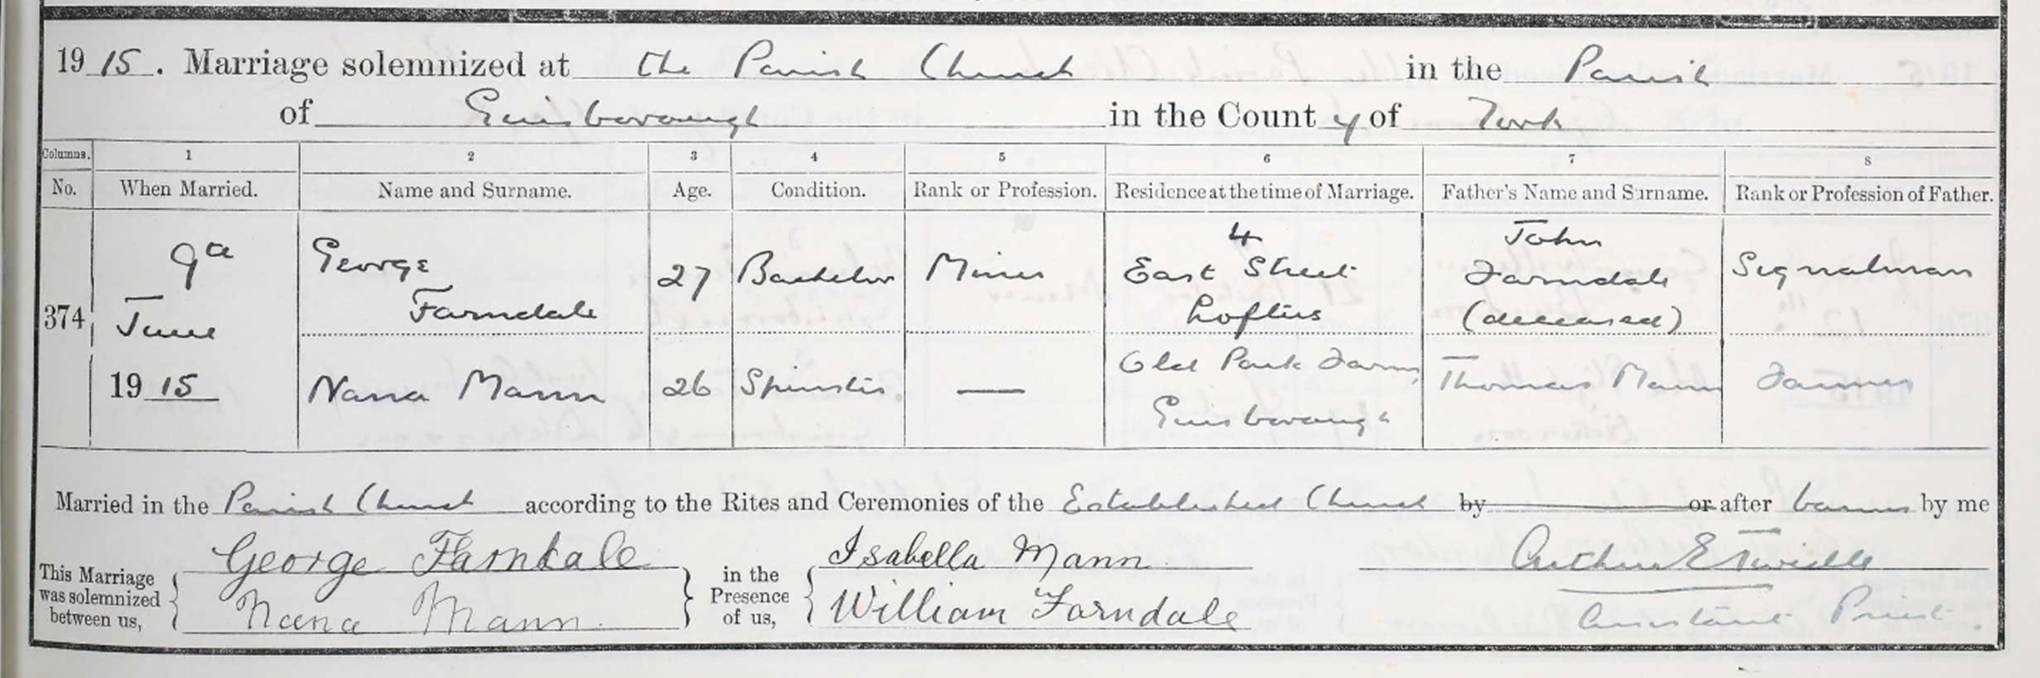 1915. Marriage solemnized at the Parish Church in the Parish
of Guisborough in the County of York
Columns. 1 2 3 4 5 6 7 8
No. When Married. Name and Surname. Age. Condition. Rank or Profession. Residence at the time of Marriage. Father's Name and Surname. Rank or Profession of Father.
374 9th June 1915
George Farndale 27 Bachelor Miner 4 East Street Loftus John Farndale (deceased) Signalman
Nana Mann 26 Spinster — Old Park Farm, Guisborough Thomas Mann Farmer
Married in the Parish Church according to the Rites and Ceremonies of the Established Church by or after banns by me
This Marriage was solemnized between us,
George Farndale
Nana Mann
in the Presence of us,
Isabella Mann
William Farndale
Arthur E
Assistant Priest.